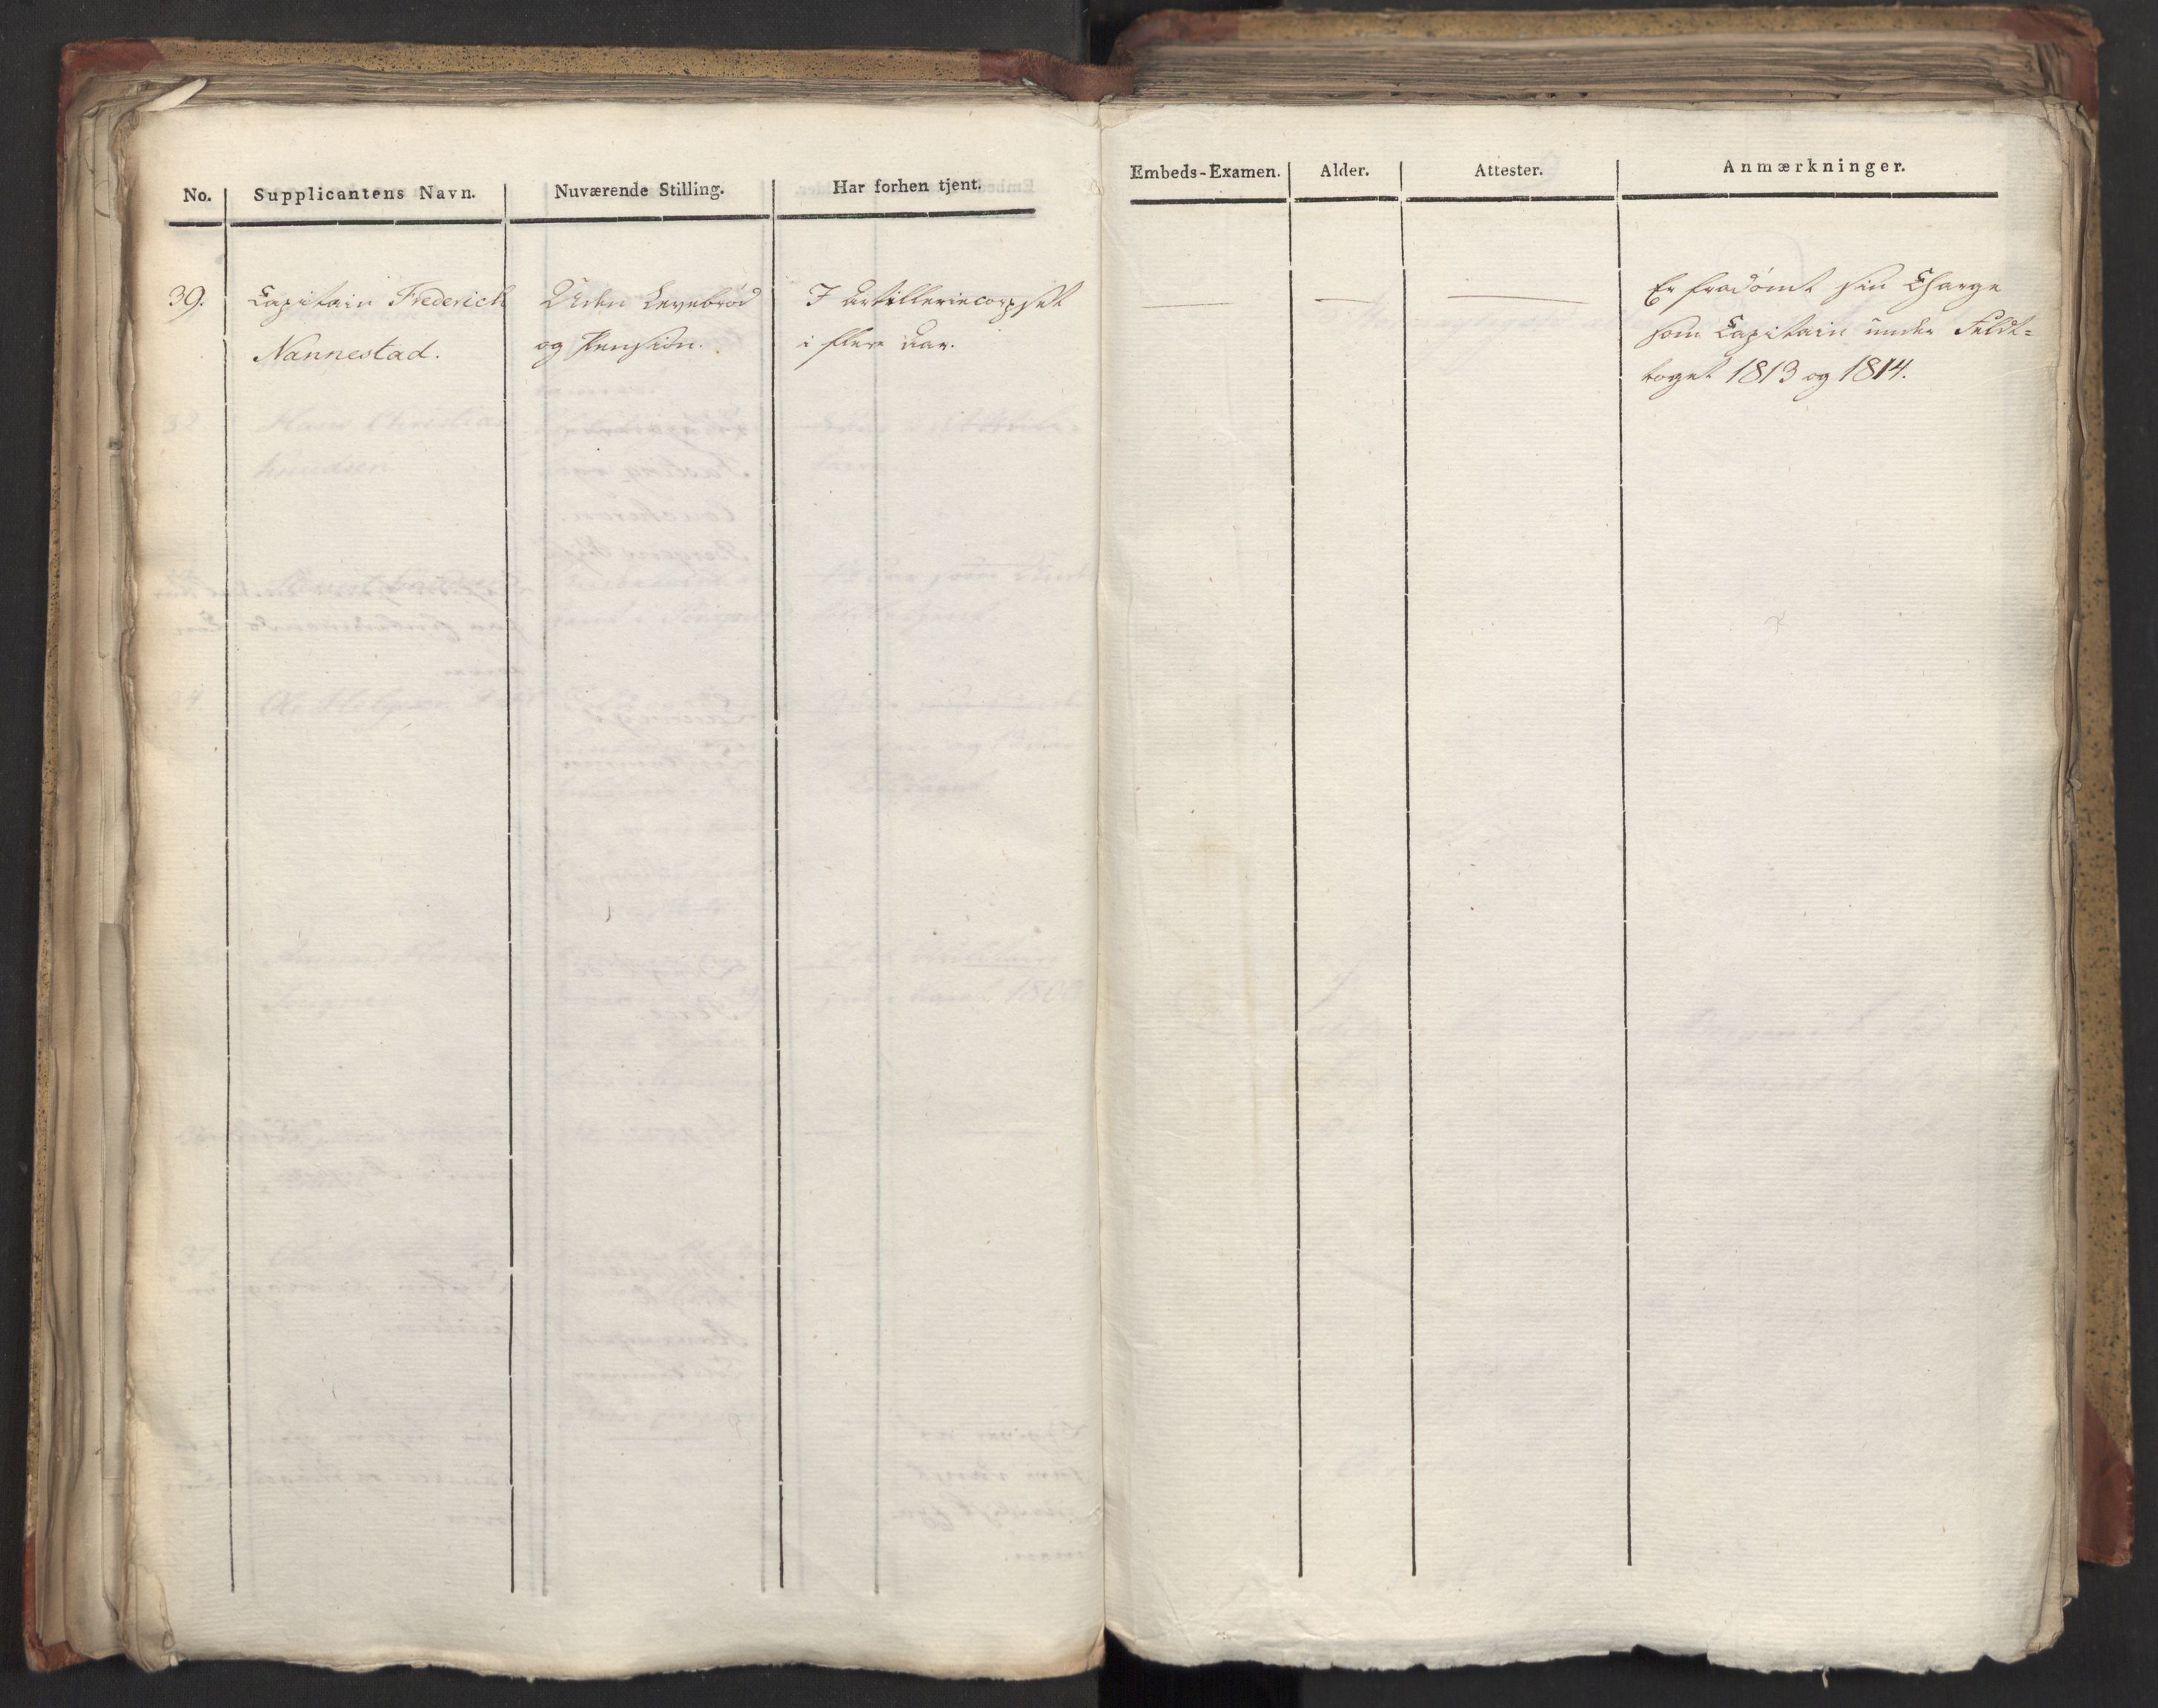 No. Supplicantens Navn. Nuværende Stilling. Har forhen tjent. Embeds-Examen. Alder. Attester. Anmærkninger.
39.
Capitain Frederich
Nannestad.
Uden Levebrød
og Pension.
I Artilleriecorpset
i flere Aar.
Er fradömt sin Charge
som Capitain under Feldt=
toget 1813 og 1814.